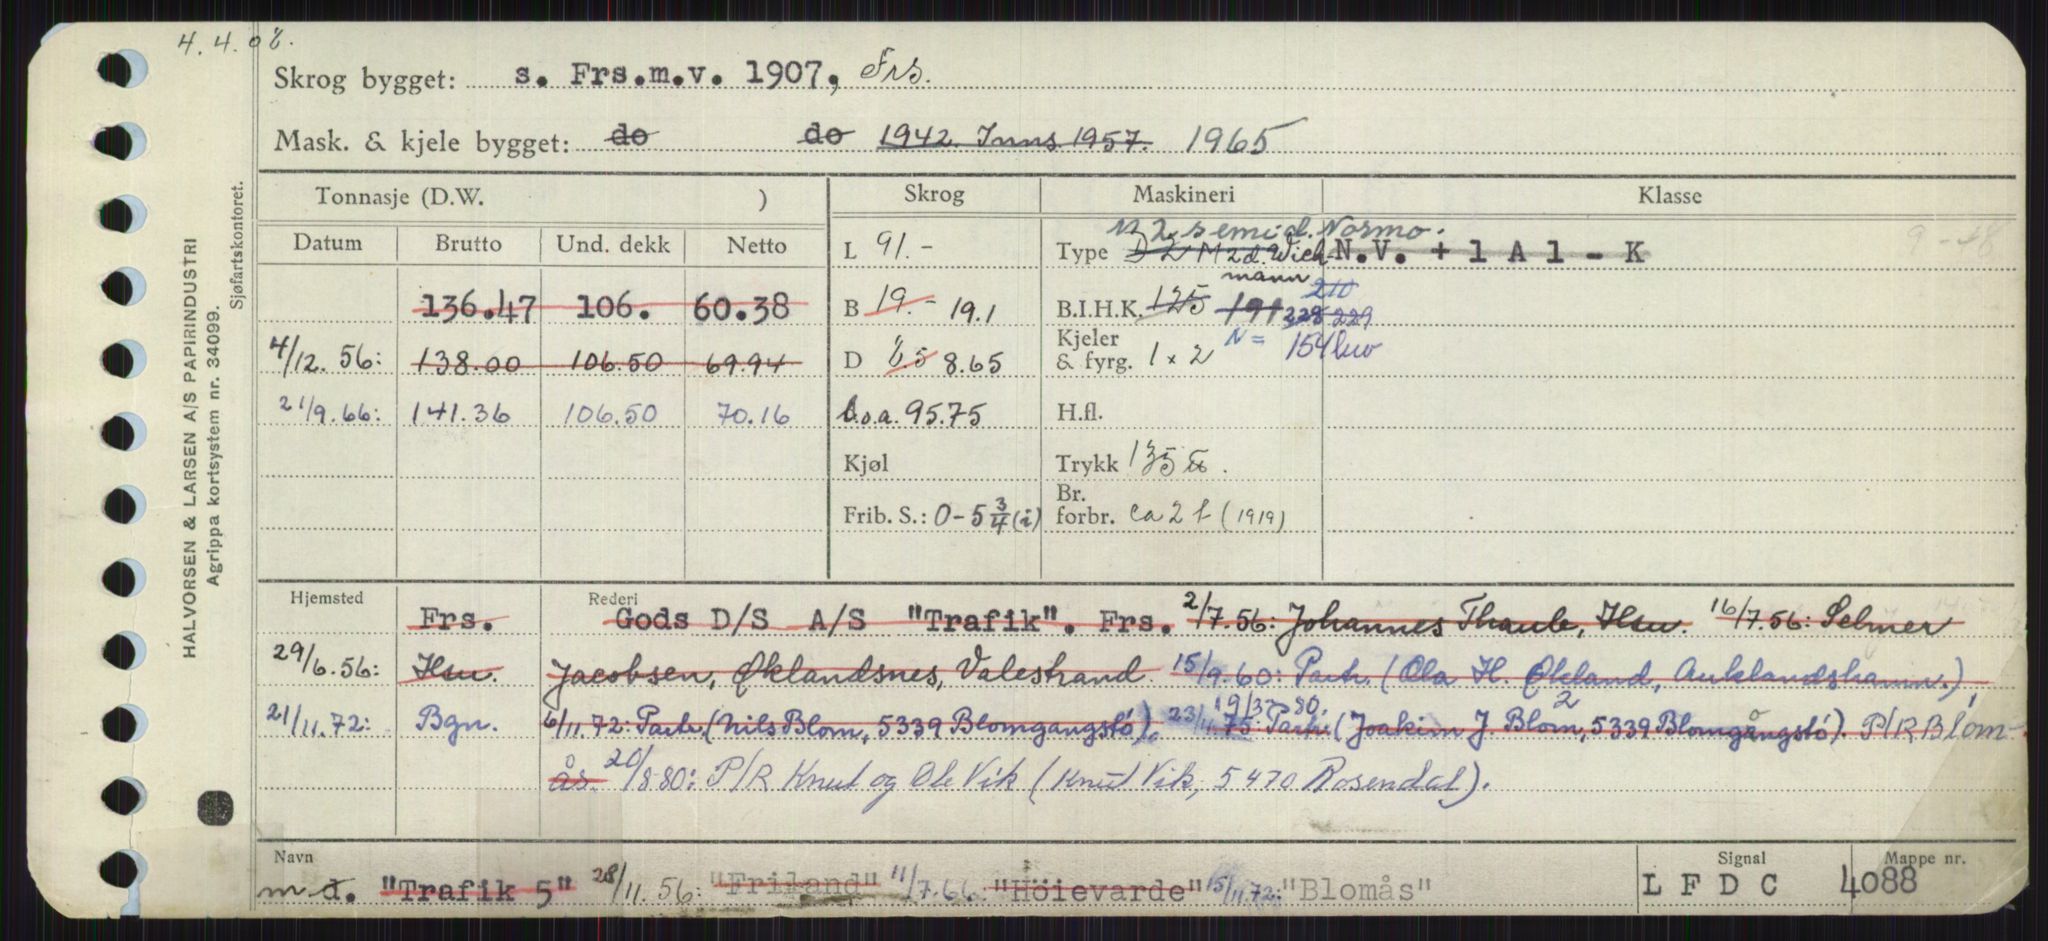 4.4.08.
Skrog bygget: s. Frs.m.v. 1907, Frs.
Mask. & kjele bygget: do do 1942. Inns 1957. 1965
HALVORSEN & LARSEN A/S PAPIRINDUSTRI
Agrippa kortsystem nr. 34099.
Sjøfartskontoret.
Tonnasje (D.W. )
Datum Brutto Und. dekk Netto
136.47 106. 60.38
4/12.56: 138.00 106.50 69.94
21/9.66: 141.36 106.50 70.16
Skrog
L 91.-
B 19.- 19.1
D 8.65
L.o.a. 95.75
Kjøl
Frib. S.: 0-5 3/4 (i)
Maskineri
M 2 semi-d. Normo.
Type D 2 M 2 d. Wich-
mann
210
B.I.H.K. 125 191 228 229
Kjeler
& fyrg. 1 x 2 N = 154
H.fl.
Trykk 135
Br.
forbr. ca 2 t (1919)
Klasse
N.V. + 1 A 1 - K
Hjemsted Rederi
Frs. Gods D/S A/S "Trafik". Frs. 2/7.56: Johannes Thaule, Hsu. 16/7.56: Selmer
29/6.56: Hsu. Jacobsen, Øklandsnes, Valestrand. 15/9.60: Partr. (Ola H. Økland, Auklandshamn.)
19/3 80.
21/11.72: Bgn. 6/11.72: Partr. (Nils Blom, 5339 Blomgangstø). 23/11.75: Partr. (Joakim J. Blom, 5339 Blomgångstø). P/R Blom-
ås. 20/8 80: P/R Knut og Ole Vik (Knut Vik, 5470 Rosendal).
Navn Signal Mappe nr.
m d. "Trafik 5" 28/11.56: "Friland" 11/7.66. "Höievarde" 15/11.72: "Blomås" LFDC 4088